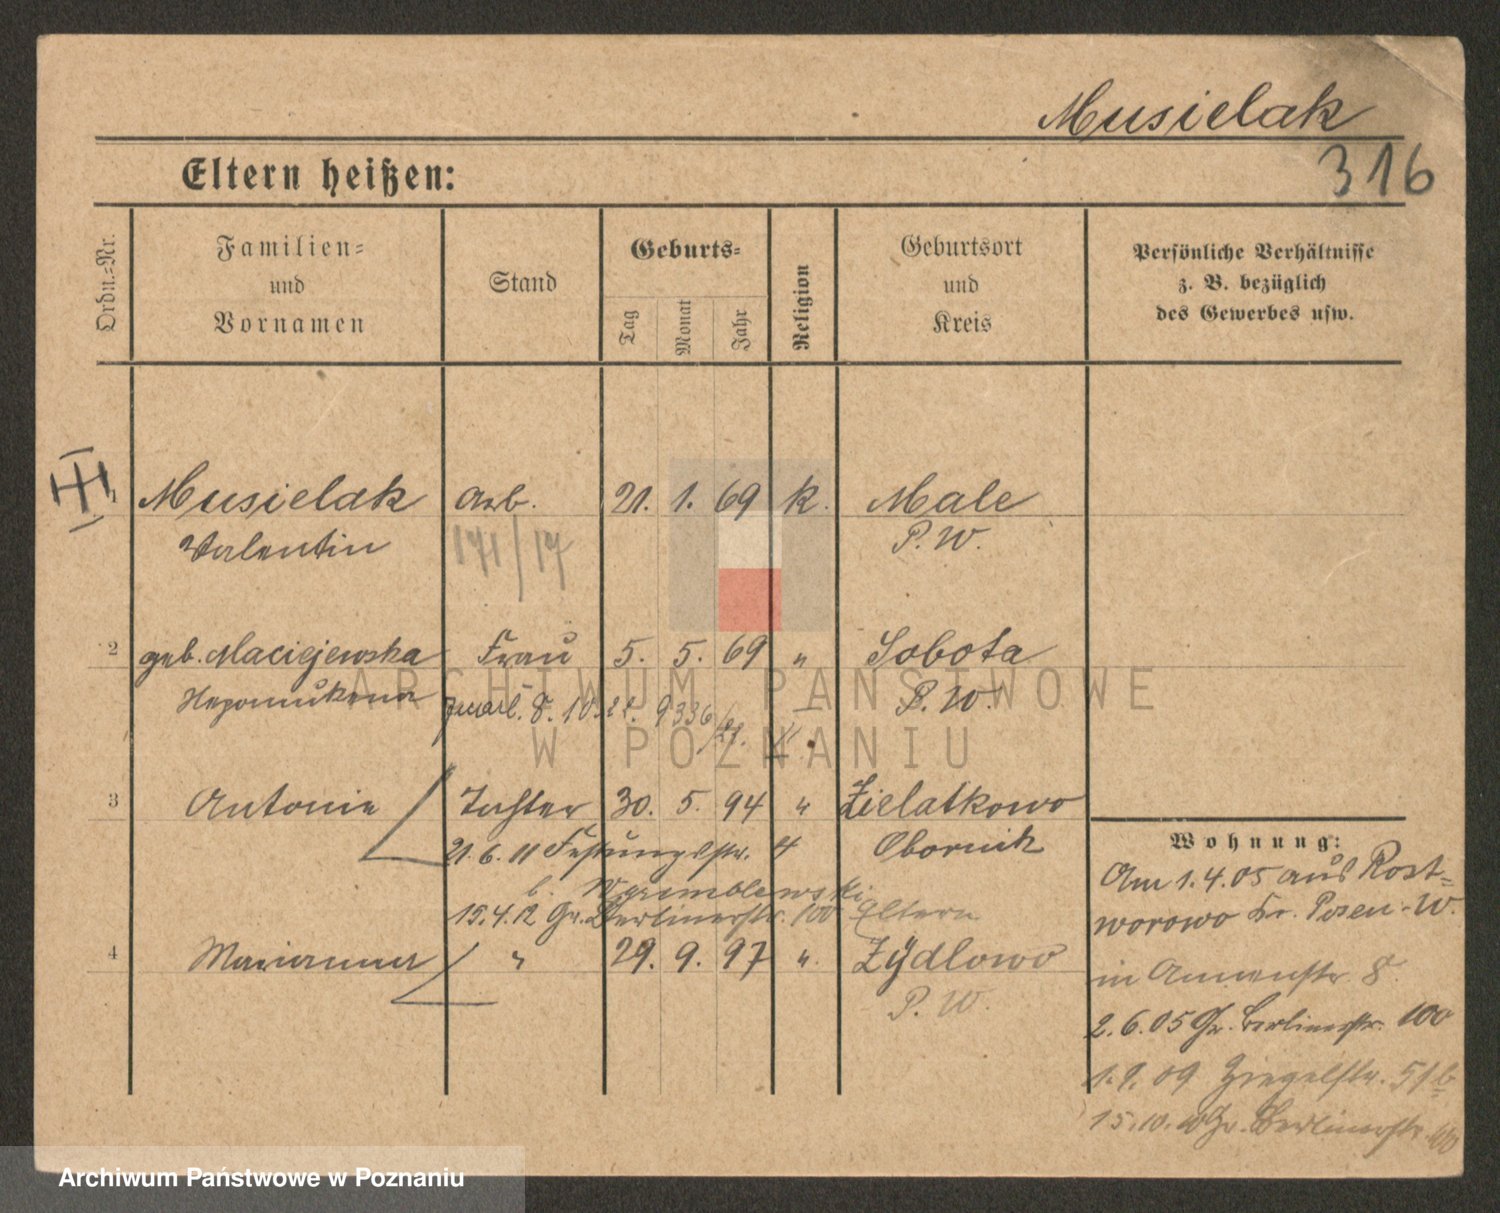 Musielak
316
Eltern heißen:
Ordn.-Nr.
Familien-
und
Vornamen
Stand
Geburts-
Tag
Monat
Jahr
Religion
Geburtsort
und
Kreis
Persönliche Verhältnisse
z. B. bezüglich
des Gewerbes usw.
III
1 Musielak Arb. 21. 1. 69 K. Male
Valentin 171/17 P. W.
2 geb. Maciejewska Frau 5. 5. 69 " Sobota
Nepomukena P. W.
8. 10. 21. 9336/21.
3 Antonie Tochter 30. 5. 94 " Zielatkowo
21. 6. 11 Festungsstr. 4 Obornik
b.
15.4.12 Gr. Berlinerstr. 100 Eltern
4 Marianna " 29. 9. 97 ". Zÿdlowo
P. W.
Wohnung:
Am 1.4.05 aus Rost-
worowo Kr. Posen-W.
in Annenstr. 8.
2.6.05 Gr. Berlinerstr. 100
1.9.09 Ziegelstr. 51b
15.10. Gr. Berlinerstr. 100
ARCHIWUM PAŃSTWOWE
W POZNANIU
Archiwum Państwowe w Poznaniu